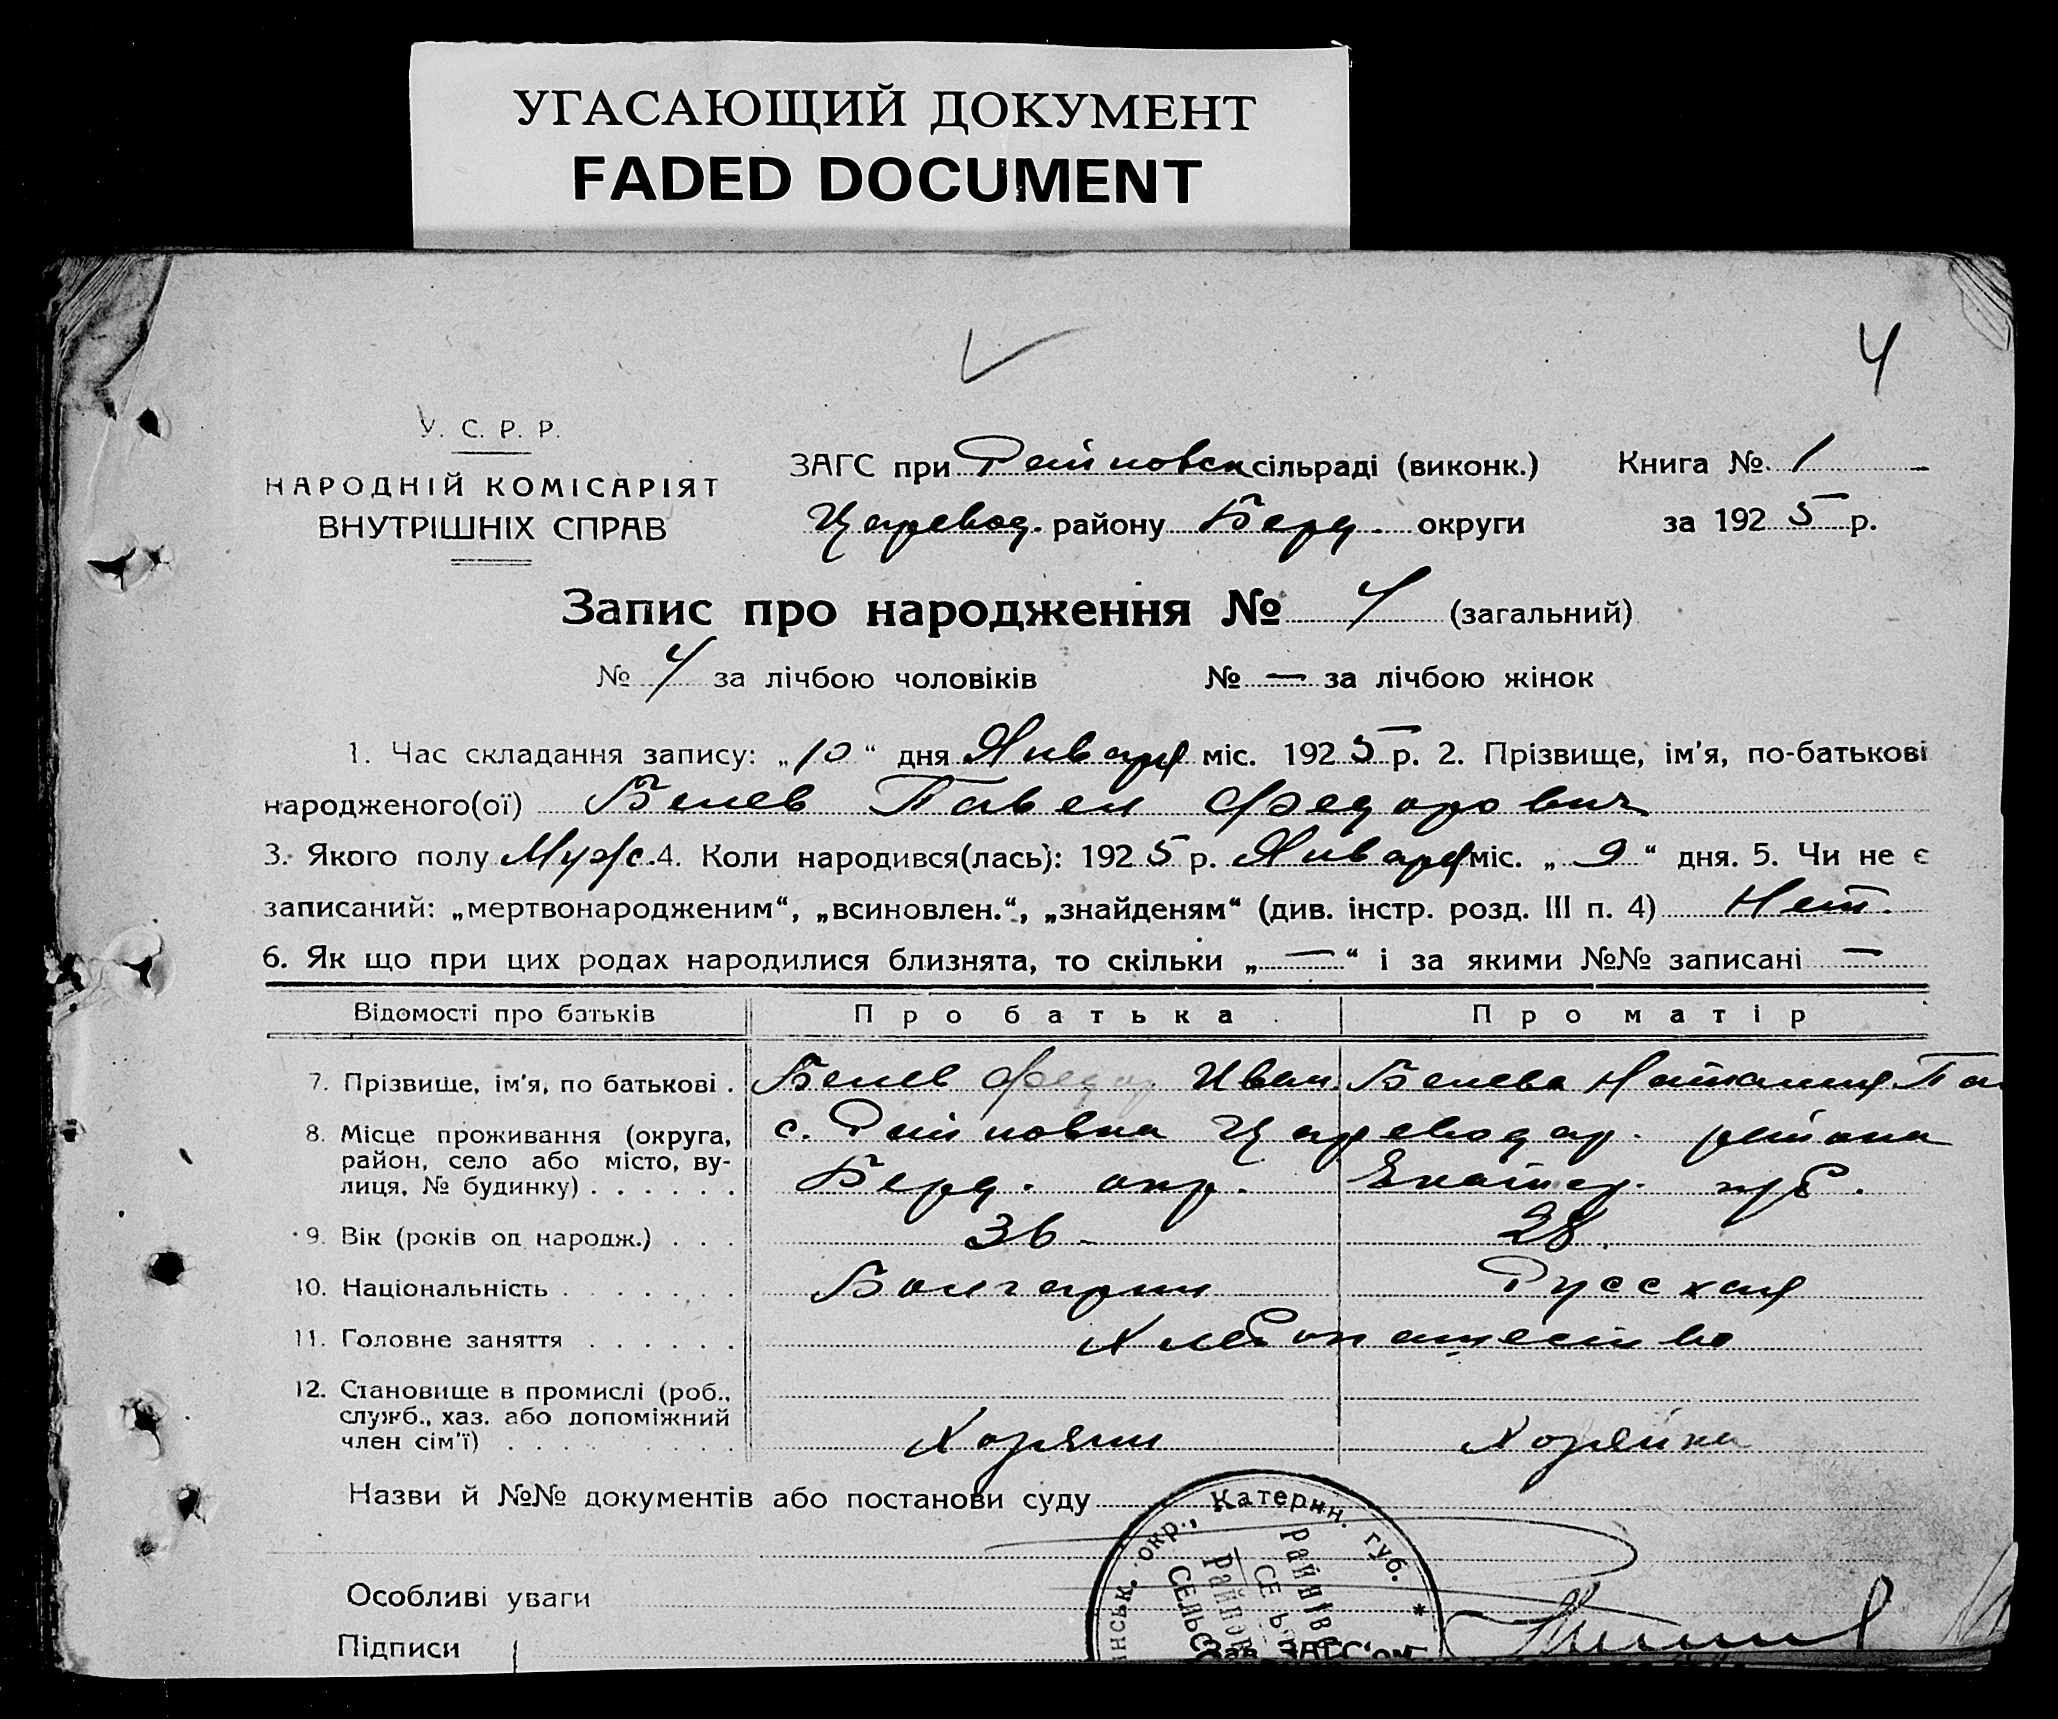 УГАСАЮЩИЙ ДОКУМЕНТ
FADED DOCUMENT
4
У. С. Р. Р.
НАРОДНІЙ КОМІСАРІЯТ
ВНУТРІШНІХ СПРАВ
ЗАГС при Райновск сільраді (виконк.) Книга № 1
Царевод. району Берд. округи за 1925 р.
Запис про народження № 4 (загальний)
№ 4 за лічбою чоловіків № — за лічбою жінок
1. Час складання запису: „10“ дня Января міс. 1925 р. 2. Прізвище, ім'я, по-батькові
народженого(ої) Белев Павел Федорович
3. Якого полу Муж. 4. Коли народився(лась): 1925 р. Января міс. „9“ дня. 5. Чи не є
записаний: „мертвонародженим“, „всиновлен.“, „знайденям“ (див. інстр. розд. III п. 4) Нет.
6. Як що при цих родах народилися близнята, то скільки „—“ і за якими №№ записані —
Відомості про батьків Про батька Про матір
7. Прізвище, ім'я, по батькові . Белев Федор Иван. Белева Наталия Па
8. Місце проживання (округа, с. Райновка Цареводар. района
район, село або місто, ву-
лиця, № будинку) . . . . . . Берд. окр. Екатер. губ.
9. Вік (років од народж.) . . . 36 28.
10. Національність . . . . . . . Болгарин Русская
11. Головне заняття . . . . . . Хлебопашество
12. Становище в промислі (роб.,
служб., хаз. або допоміжний
член сім'ї) . . . . . . . . . Хозяин Хозяйка
Назви й №№ документів або постанови суду
Катерин. губ. *
нськ. окр.,
Особливі уваги
Підписи
Зав. ЗАГС'ом